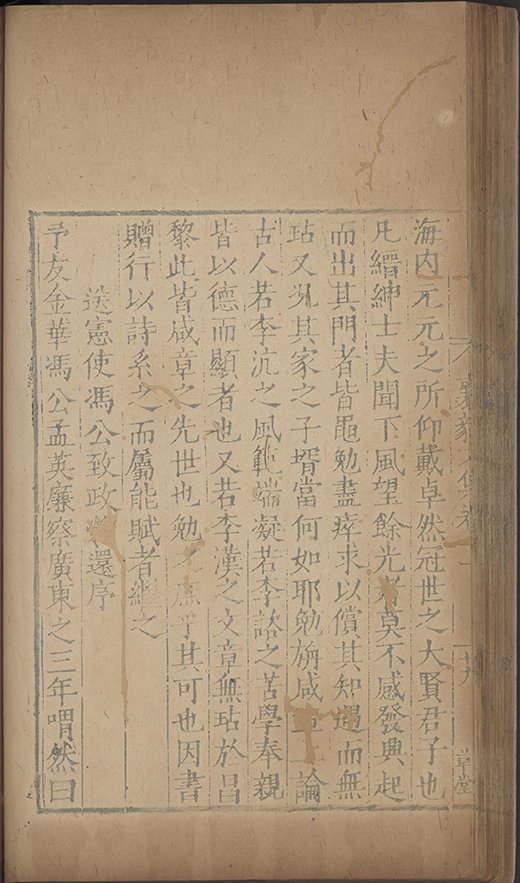 海内元元之所仰戴卓然冠世之大賢君子也
凡縉紳士夫聞下風望餘光者莫不感發興起
而出其門者皆黽勉盡瘁求以償其知遇而無
玷又況其家之子壻當何如耶勉旃咸章上論
古人若李沆之風範端凝若李諮之苦學奉親
皆以德而顯者也又若李漢之文章無玷於昌
黎此皆咸章之先世也勉之庶乎其可也因書
贈行以詩系之而屬能賦者繼之
送憲使馮公致政還序
予友金華馮公孟英廉察廣東之三年喟然曰
襄毅文集卷
草堂